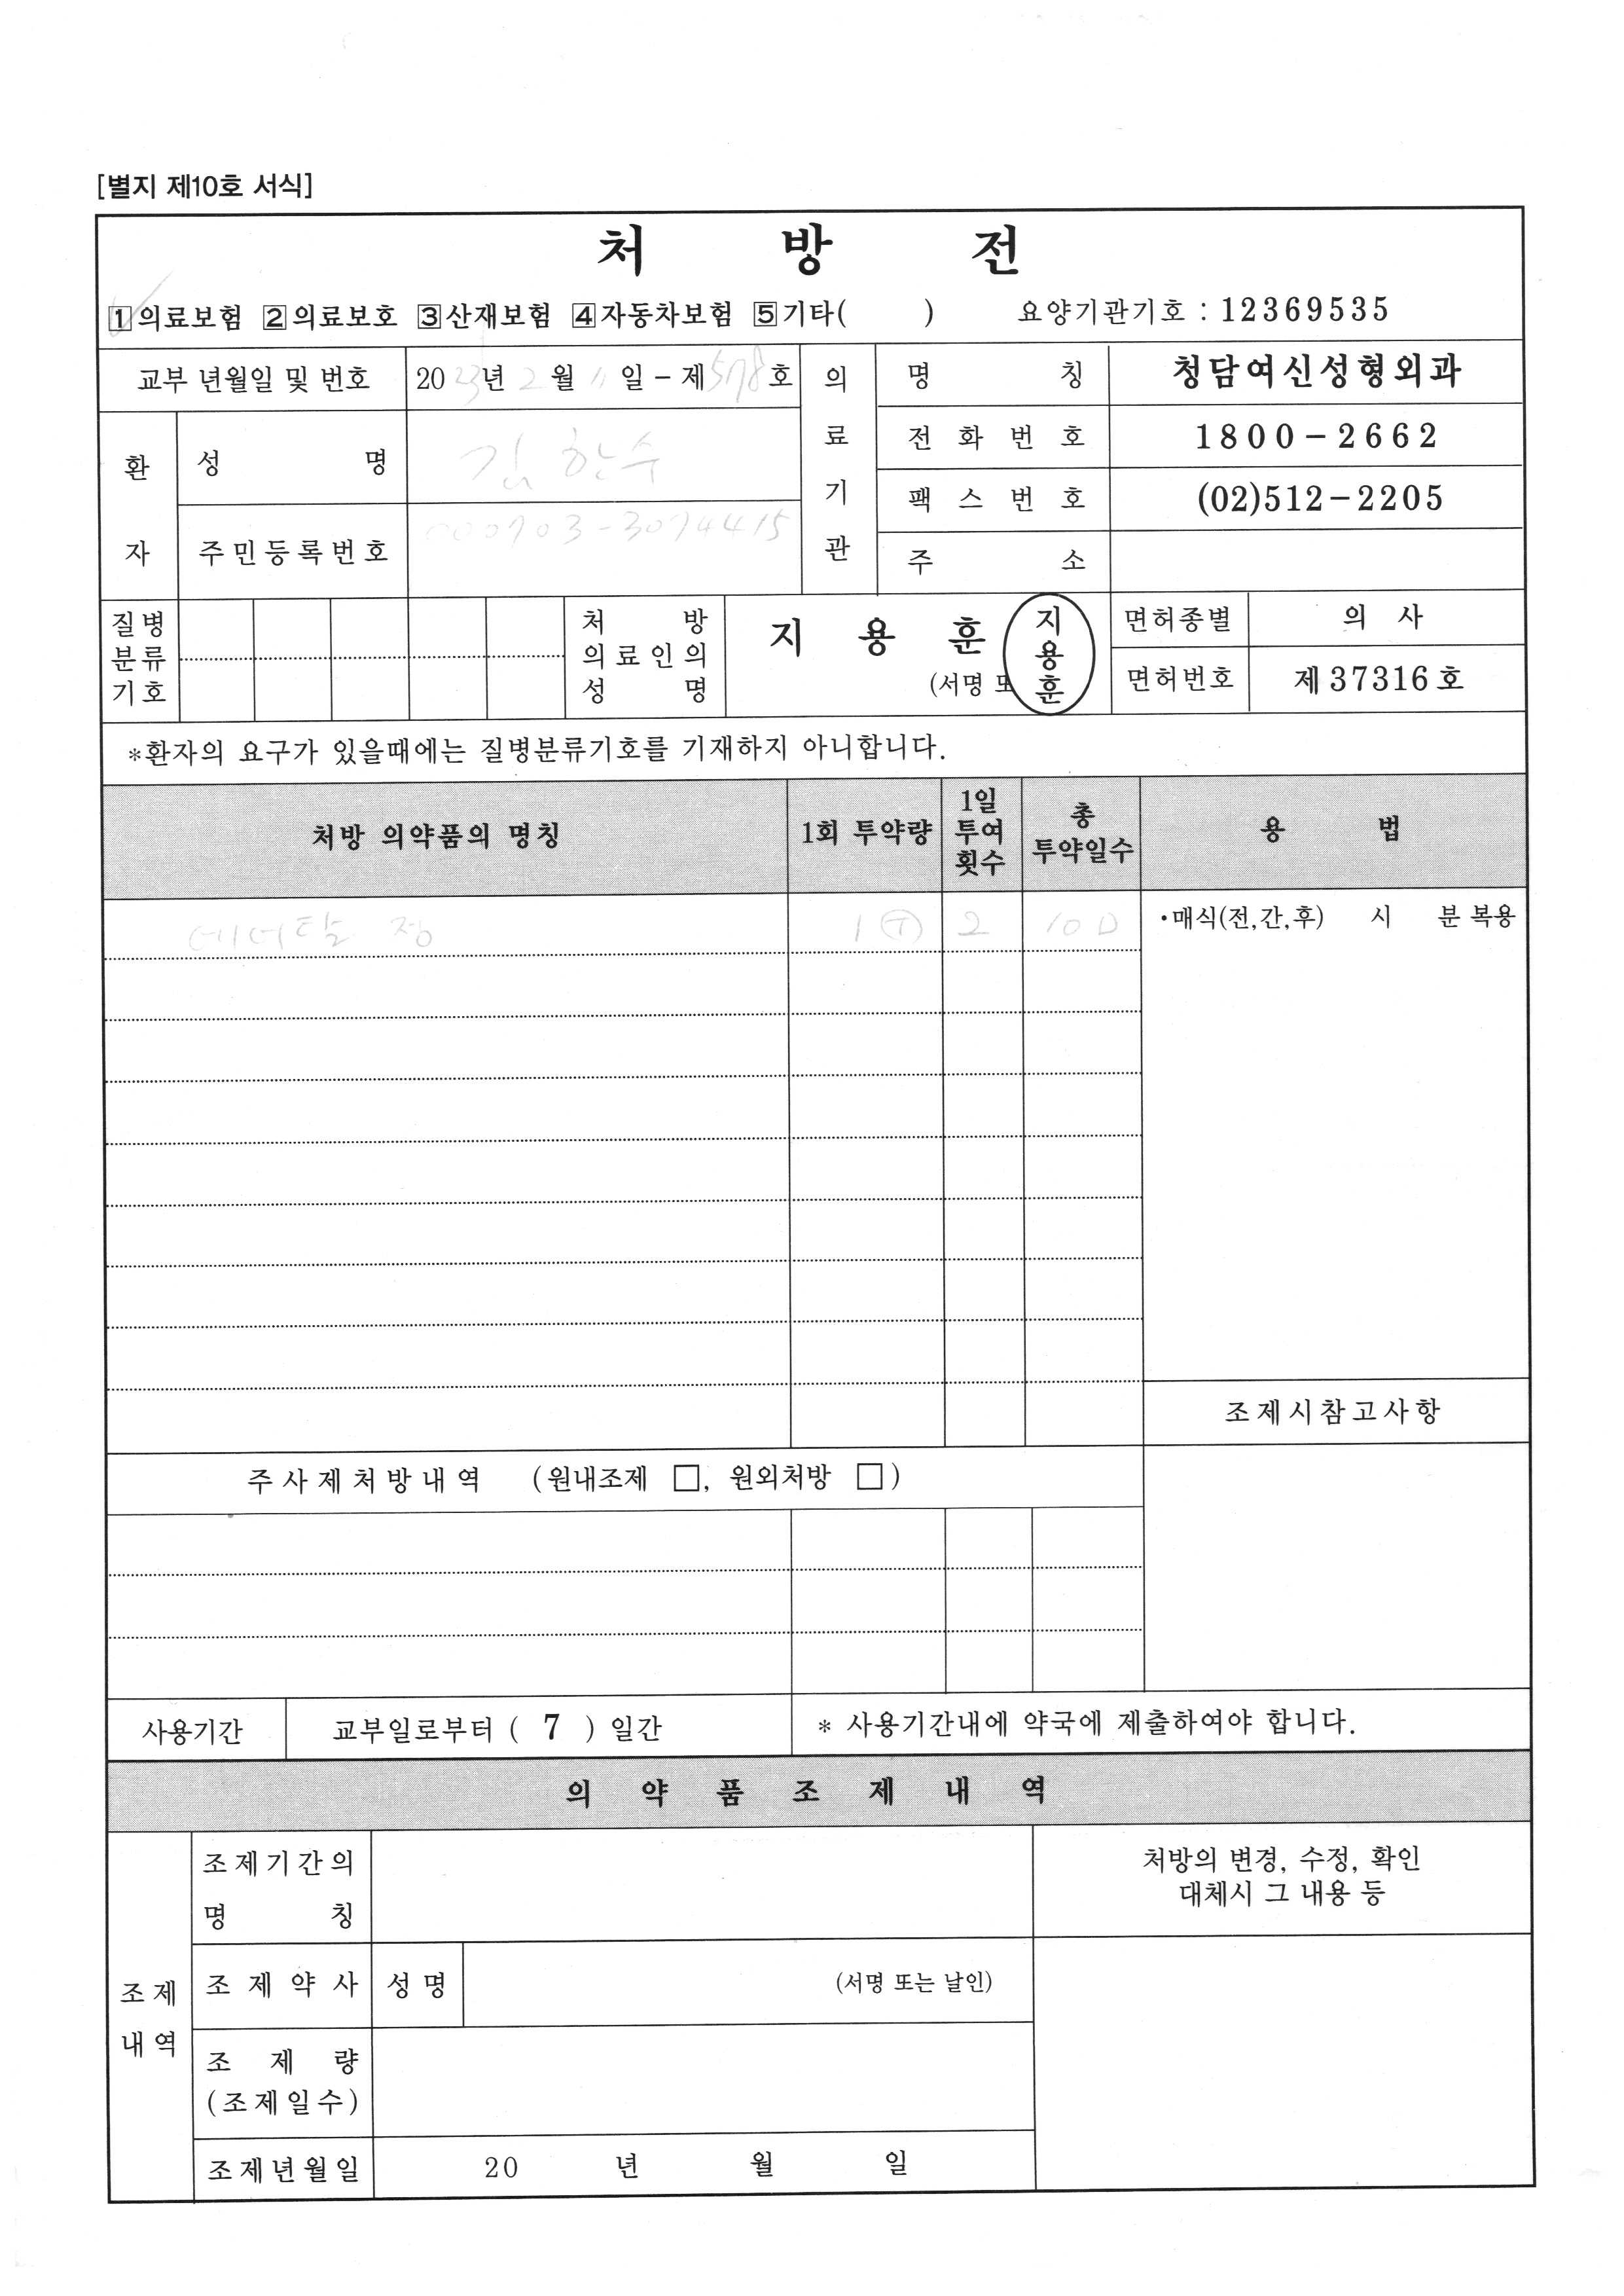 [별지 제10호 서식]
처 방 전
1 의료보험 2 의료보호 3 산재보험 4 자동차보험 5 기타( ) 요양기관기호 : 12369535
교부 년월일 및 번호 2023년 2월 11일 - 제578호
의료기관 명 칭 청담여신성형외과
전 화 번 호 1800-2662
팩 스 번 호 (02)512-2205
주 소
환 자 성 명 김한수
주민등록번호 000703-3074415
질병분류기호
처 방 의료인의 성 명 지 용 훈 (서명 또 지용훈
면허종별 의 사
면허번호 제 37316 호
*환자의 요구가 있을때에는 질병분류기호를 기재하지 아니합니다.
처방 의약품의 명칭 1회 투약량 1일 투여 횟수 총 투약일수 용 법
정 1 T 2 10 D •매식(전,간,후) 시 분 복용
조제시참고사항
주사제처방내역 (원내조제 □, 원외처방 □)
사용기간 교부일로부터 ( 7 ) 일간 * 사용기간내에 약국에 제출하여야 합니다.
의 약 품 조 제 내 역
조제내역 조제기간의 명 칭 처방의 변경, 수정, 확인
대체시 그 내용 등
조 제 약 사 성 명 (서명 또는 날인)
조 제 량
(조제일수)
조제년월일 20 년 월 일